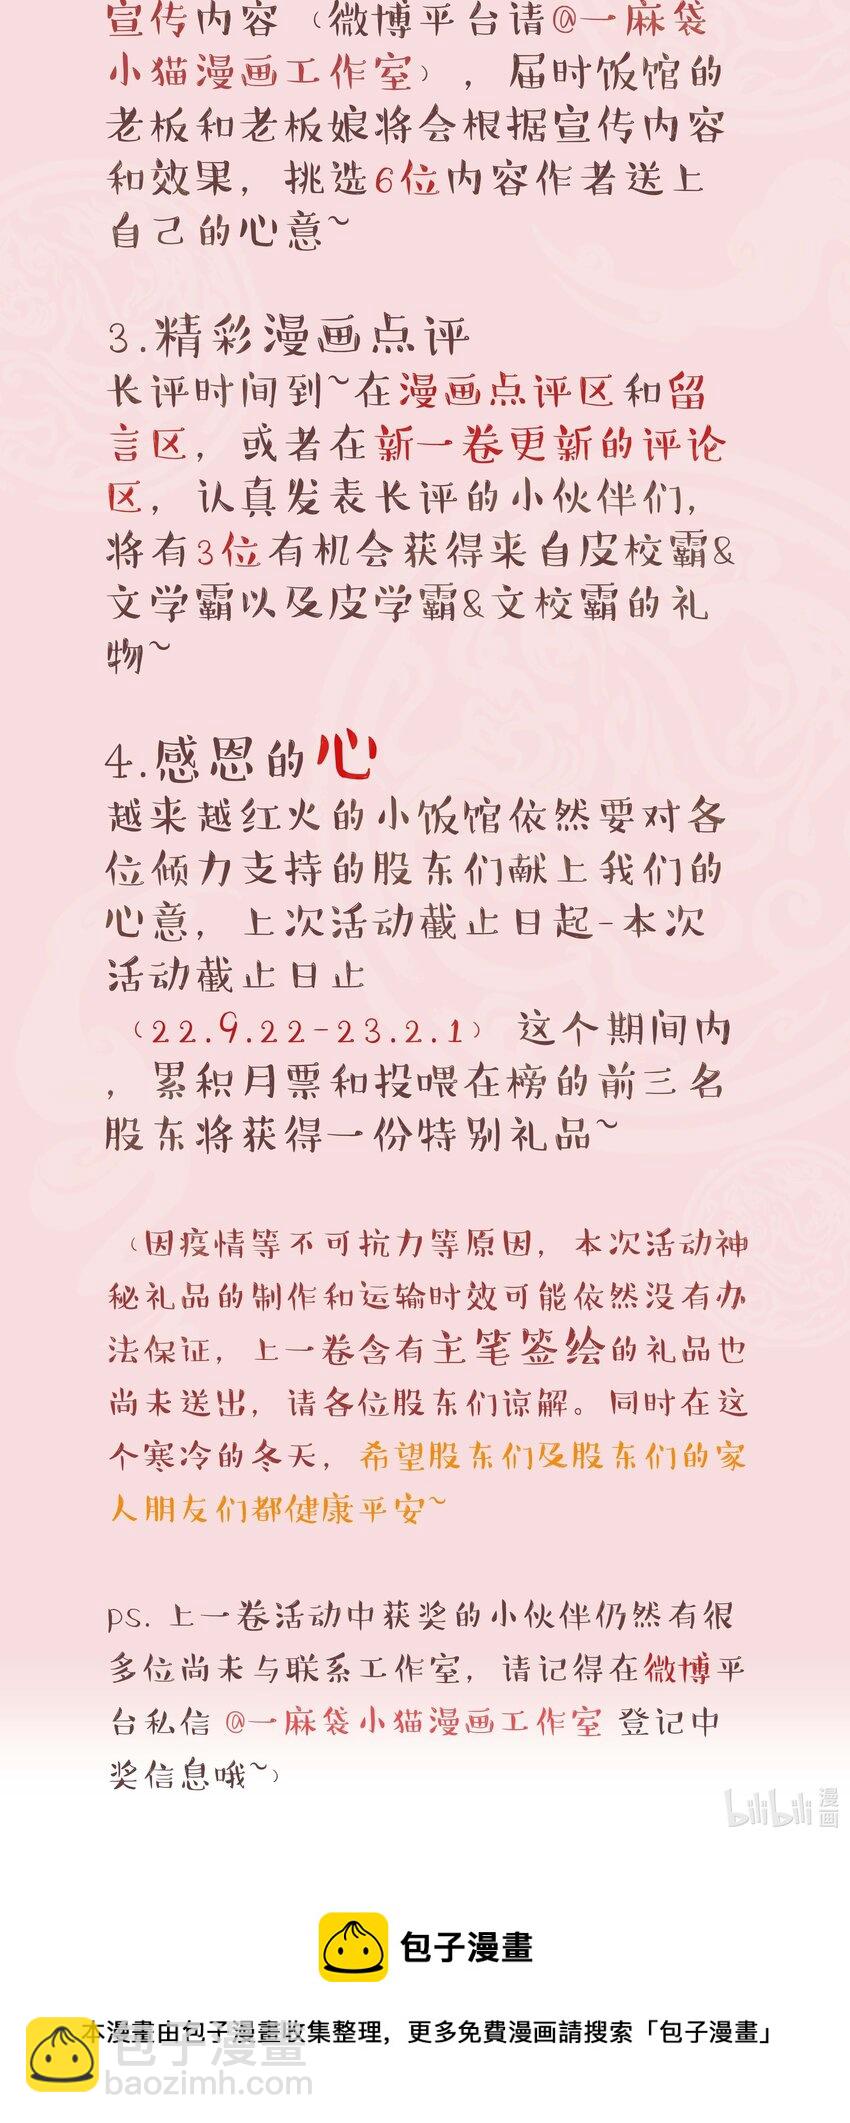 宣传内容（微博平台请@一麻袋
小猫漫画工作室），届时饭馆的
老板和老板娘将会根据宣传内容
和效果，挑选6位内容作者送上
自己的心意~
3.精彩漫画点评
长评时间到~在漫画点评区和留
言区，或者在新一卷更新的评论
区，认真发表长评的小伙伴们，
将有3位有机会获得来自皮校霸&
文学霸以及皮学霸&文校霸的礼
物~
4.感恩的心
越来越红火的小饭馆依然要对各
位倾力支持的股东们献上我们的
心意，上次活动截止日起-本次
活动截止日止
（22.9.22-23.2.1）这个期间内
，累积月票和投喂在榜的前三名
股东将获得一份特别礼品~
（因疫情等不可抗力等原因，本次活动神
秘礼品的制作和运输时效可能依然没有办
法保证，上一卷含有主笔签绘的礼品也
尚未送出，请各位股东们谅解。同时在这
个寒冷的冬天，希望股东们及股东们的家
人朋友们都健康平安~
ps. 上一卷活动中获奖的小伙伴仍然有很
多位尚未与联系工作室，请记得在微博平
台私信 @一麻袋小猫漫画工作室 登记中
奖信息哦~）
bilibili漫画
包子漫畫
本漫畫由包子漫畫收集整理，更多免費漫画請搜索「包子漫畫」
包子漫畫
baozimh.com